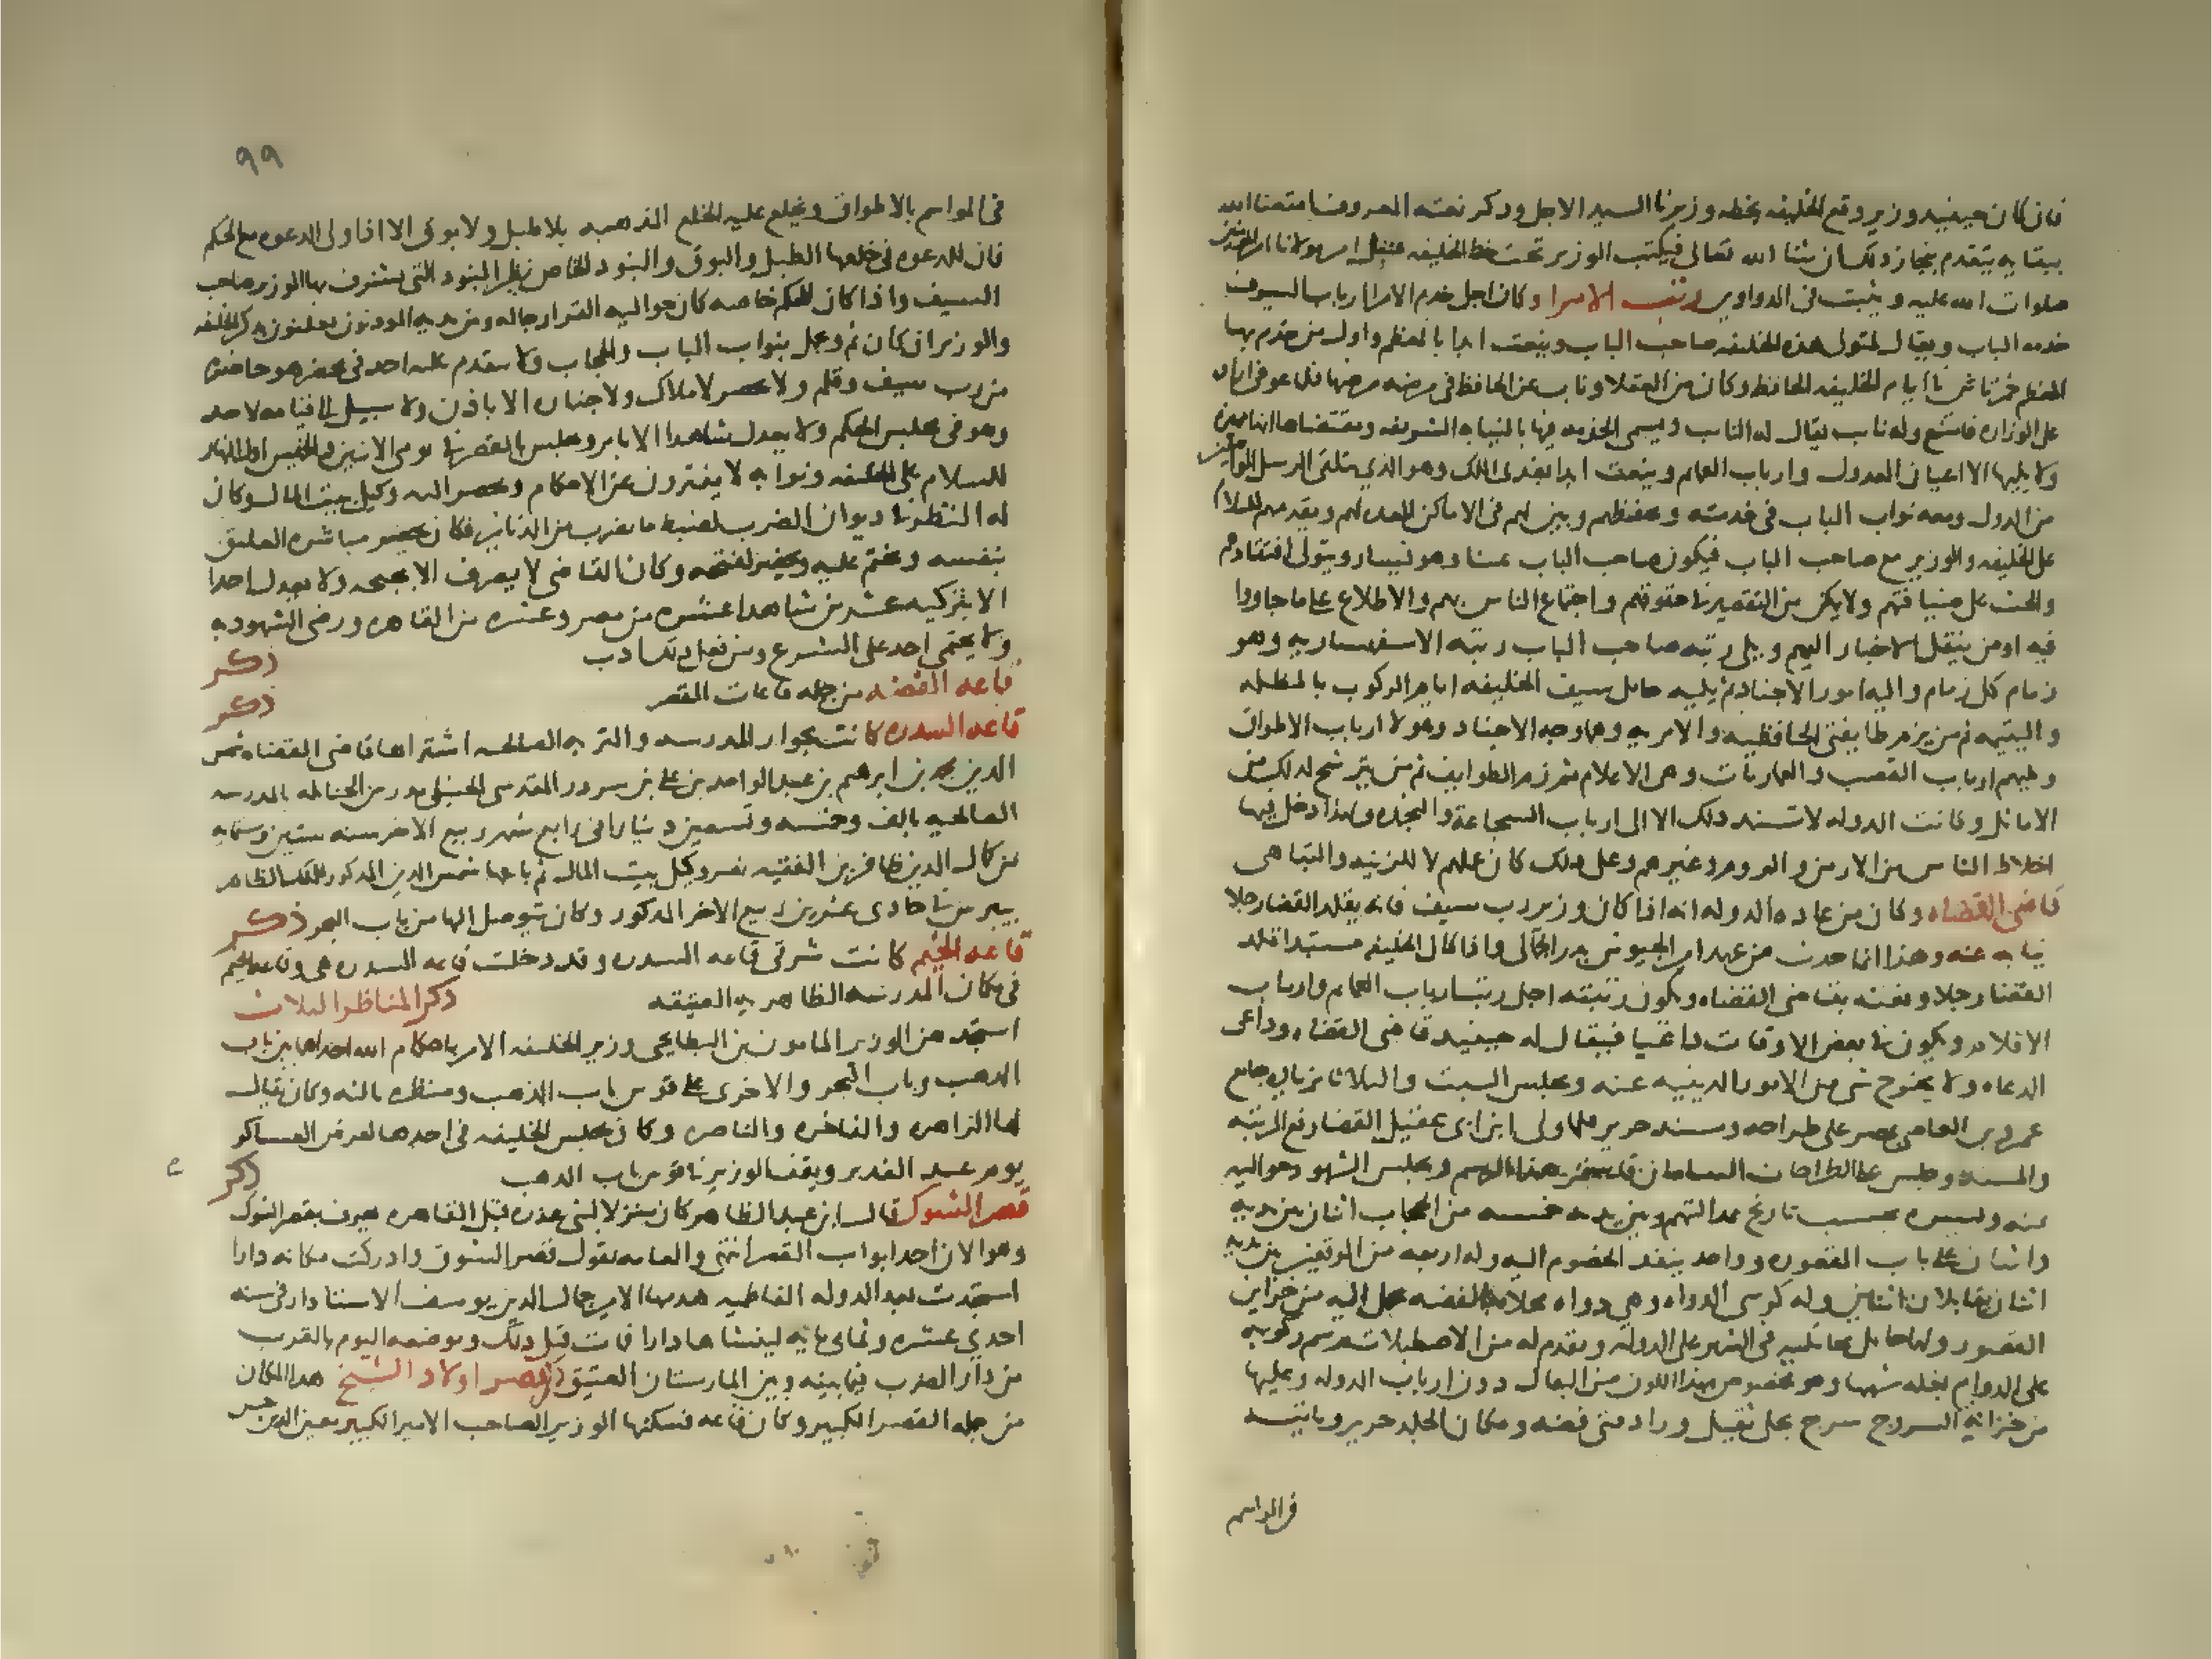 فان كان حينيد وزير وقع الخليفه بخطه وزيرنا السيد الاجل وذكر نعته المعروف امتعنا الله
ببقايه يتقدم بنجاز ذلك ان شا الله تعالى فيكتب الوزير تحت خط الخليفه امتثل امر مولانا امير المومنين
صلوات الله عليه ويثبت فى الدواوين رتب الامرا وكان اجل خدم الامرا ارباب السيوف
خدمه الباب ويقال لمتولى هذه الخدمه صاحب الباب وينعت ابدا بالمعظم واول من خدم بها
المعظم خمرتاش فى ايام الخليفه الحافظ وكان من العقلا وناب عن الحافظ فى مرضه
على الوزاره فامتنع وله نايب يقال له النايب ويسمى الخدمه فيها بالنيابه الشريفه
ولا يليها الا اعيان العدول وارباب العمايم وينعت ابدا بعدى الملك وهو الذى يتلقى الرسل الواصلين
من الدول ومعه نواب الباب فى خدمته ويحفظهم وينزلهم فى الاماكن المعده لهم ويقدمهم للسلام
على الخليفه والوزير مع صاحب الباب فيكون صاحب الباب يمينا وهو يسار ويتولى افتقادهم
والحث على ضيافتهم ولا يمكن من التقصير فى حقوقهم واجتماع الناس بهم والاطلاع على ما جاووا
فيه او من ينقل الاخبار اليهم ويلى رتبه صاحب الباب رتبه الاسفهسلاريه وهو
زمام كل زمام واليه امور الاجناد ثم يليه حامل سيف الخليفه ايام الركوب بالمظله
واليتيمه ثم من يزم طايفتى الحافظيه والامريه وهما وجه الاجناد وهولا ارباب الاطواق
ويليهم ارباب القصب والعماريات وهى الاعلام ثم زم الطوايف ثم من يترشح لذلك من
الاماثل وكانت الدوله لا تسند ذلك الا الى ارباب الشجاعة والنجده ولهذا دخل فيها
اخلاط الناس من الارمن والروم وغيرهم وعلى ذلك كان عملهم لا للزينه والتباهى
قاضى القضاه وكان من عاده الدوله انه اذا كان وزير رب سيف فانه يقلد القضا رجلا
نيابه عنه وهذا انما حدث من عهد امير الجيوش بدر الجمالى واذا كان الخليفه مستبدا قلد
القضا رجلا ونعته بقاضى القضاه ويكون رتبته اجل رتب ارباب العمايم وارباب
الاقلام ويكون فى بعض الاوقات داعيا فيقال له حينيد قاضى القضاه وداعى
الدعاه ولا يخرج شى من الامور الدينيه عنه ويجلس السبت والثلاثا بزياده جامع
عمرو بن العاص بمصر على طراحه ومسند حرير فلما ولى ابن ابى عقيل القضا رفع المرتبه
والمسند وجلس على الطراحات السامان فاستمر هذا الرسم ويجلس الشهود حواليه
يمنه ويسره بحسب تاريخ عدالتهم وبين يديه خمسه من الحجاب اثنان بين يديه
واثنان على باب المقصوره وواحد ينفذ الخصوم اليه وله اربعه من الموقعين بين يديه
اثنان يقابلان اثنان وله كرسى الدواه وهى دواه محلاه بالفضه تحمل اليه من خزاين
القصور ولها حامل بجامكيه فى الشهر على الدوله ويقدم له من الاصطبلات برسم ركوبه
على الدوام بغله شهبا وهو مخصوص بهذا اللون من البغال دون ارباب الدوله وعليها
من خزانة السروج سرج محلى ثقيل وراه دفتى فضه ومكان الجلد حرير وياتيه
فى المواسم
٩٩
فى المواسم بالاطواق ويخلع عليه الخلع المذهبه بلا طبل ولا بوق الا اذا ولى الدعوه مع الحكم
فان للدعوه فى خلعها الطبل والبوق والبنود الخاص نظير البنود التى يشرف بها الوزير صاحب
السيف واذا كان للحكم خاصه كان حواليه القرا رجاله وبين يديه الموذنون يعلنون بذكر الخليفه
والوزير ان كان ثم ويحمل بنواب الباب والحجاب ولا يتقدم عليه احد فى محضر هو حاضره
من رب سيف وقلم ولا يحضر لاملاك ولا جنازه الا باذن ولا سبيل الى قيامه لاحد
وهو فى مجلس الحكم ولا يعدل شاهدا الا بامر ويجلس بالقصر فى يومى الاثنين والخميس اول النهار
للسلام على الخليفه ونوابه لا يفترون عن الاحكام ويحضر اليه وكيل بيت المال وكان
له النظر فى ديوان الضرب لضبط ما يضرب من الدنانير فكان يحضر مباشره التغليق
بنفسه ويختم عليه ويحضر لفتحه وكان القاضى لا يصرف الا بجنحه ولا يعدل احدا
الا بتزكيه عشرين شاهدا عشره من مصر وعشره من القاهره ورضى الشهود به
ولا يحتمى احد على الشرع ومن فعل ذلك ادب ذكر
قاعه الفضه من جمله قاعات القصر ذكر
قاعه السدره كانت بجوار المدرسه والتربه الصالحيه اشتراها قاضى القضاه شمس
الدين محمد بن ابرهيم بن عبد الواحد بن على بن سرور المقدسى الحنبلى مدرس الحنابله بالمدرسه
الصالحيه بالف وخمسه وتسعين دينارا فى رابع شهر ربيع الاخر سنه ستين وستمايه
من كمال الدين ظافر بن الفقيه نصر وكيل بيت المال ثم باعها شمس الدين المذكور للملك الظاهر
بيبرس فى حادى عشرين ربيع الاخر المذكور وكان يتوصل اليها من باب البحر ذكر
قاعه الخيم كانت شرقى قاعه السدره وقد دخلت قاعه السدره هى وقاعه الخيم
فى مكان المدرسه الظاهريه العتيقه ذكر المناظر الثلاث
استجدهن الوزير المامون بن البطايحى وزير الخليفه الامر باحكام الله احداها بين باب
الذهب وباب البحر والاخرى على قوس باب الذهب ومنظره ثالثه وكان يقال
لها الزاهره والفاخره والناضره وكان يجلس الخليفه فى احدها لعرض العساكر
يوم عيد الغدير ويقف الوزير فى قوس باب الذهب ذكر
قصر الشوك قال ابن عبد الظاهر كان منزلا لبنى عذره قبل القاهره يعرف بقصر الشوك
وهو الان احد ابواب القصر انتهى والعامه تقول قصر الشوق وادركت مكانه دارا
استجدت بعد الدوله الفاطميه هدمها الامير جمال الدين يوسف الاستادار فى سنه
احدى عشره وثمانى مايه لينشاها دارا فمات قبل ذلك وموضعه اليوم بالقرب
من دار الضرب فيما بينه وبين المارستان العتيق ذكر قصر اولاد الشيخ هذا المكان
من جمله القصر الكبير وكان قاعه فسكنها الوزير الصاحب الامير الكبير معين الدين حسن